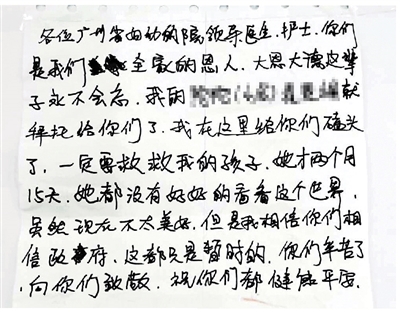 各位广州省妇幼的院领导医生、护士、你们
是我们全家的恩人、大恩大德这辈
子永不会忘、我的就
拜托给你们了、我在这里给你们磕头
了、一定要救救我的孩子、她才两个月
15天、她都没有好好的看看这个世界、
虽然现在不太美好、但是我相信你们相
信政府、这都只是暂时的、你们辛苦了
、向你们致敬、祝你们都健康平安、